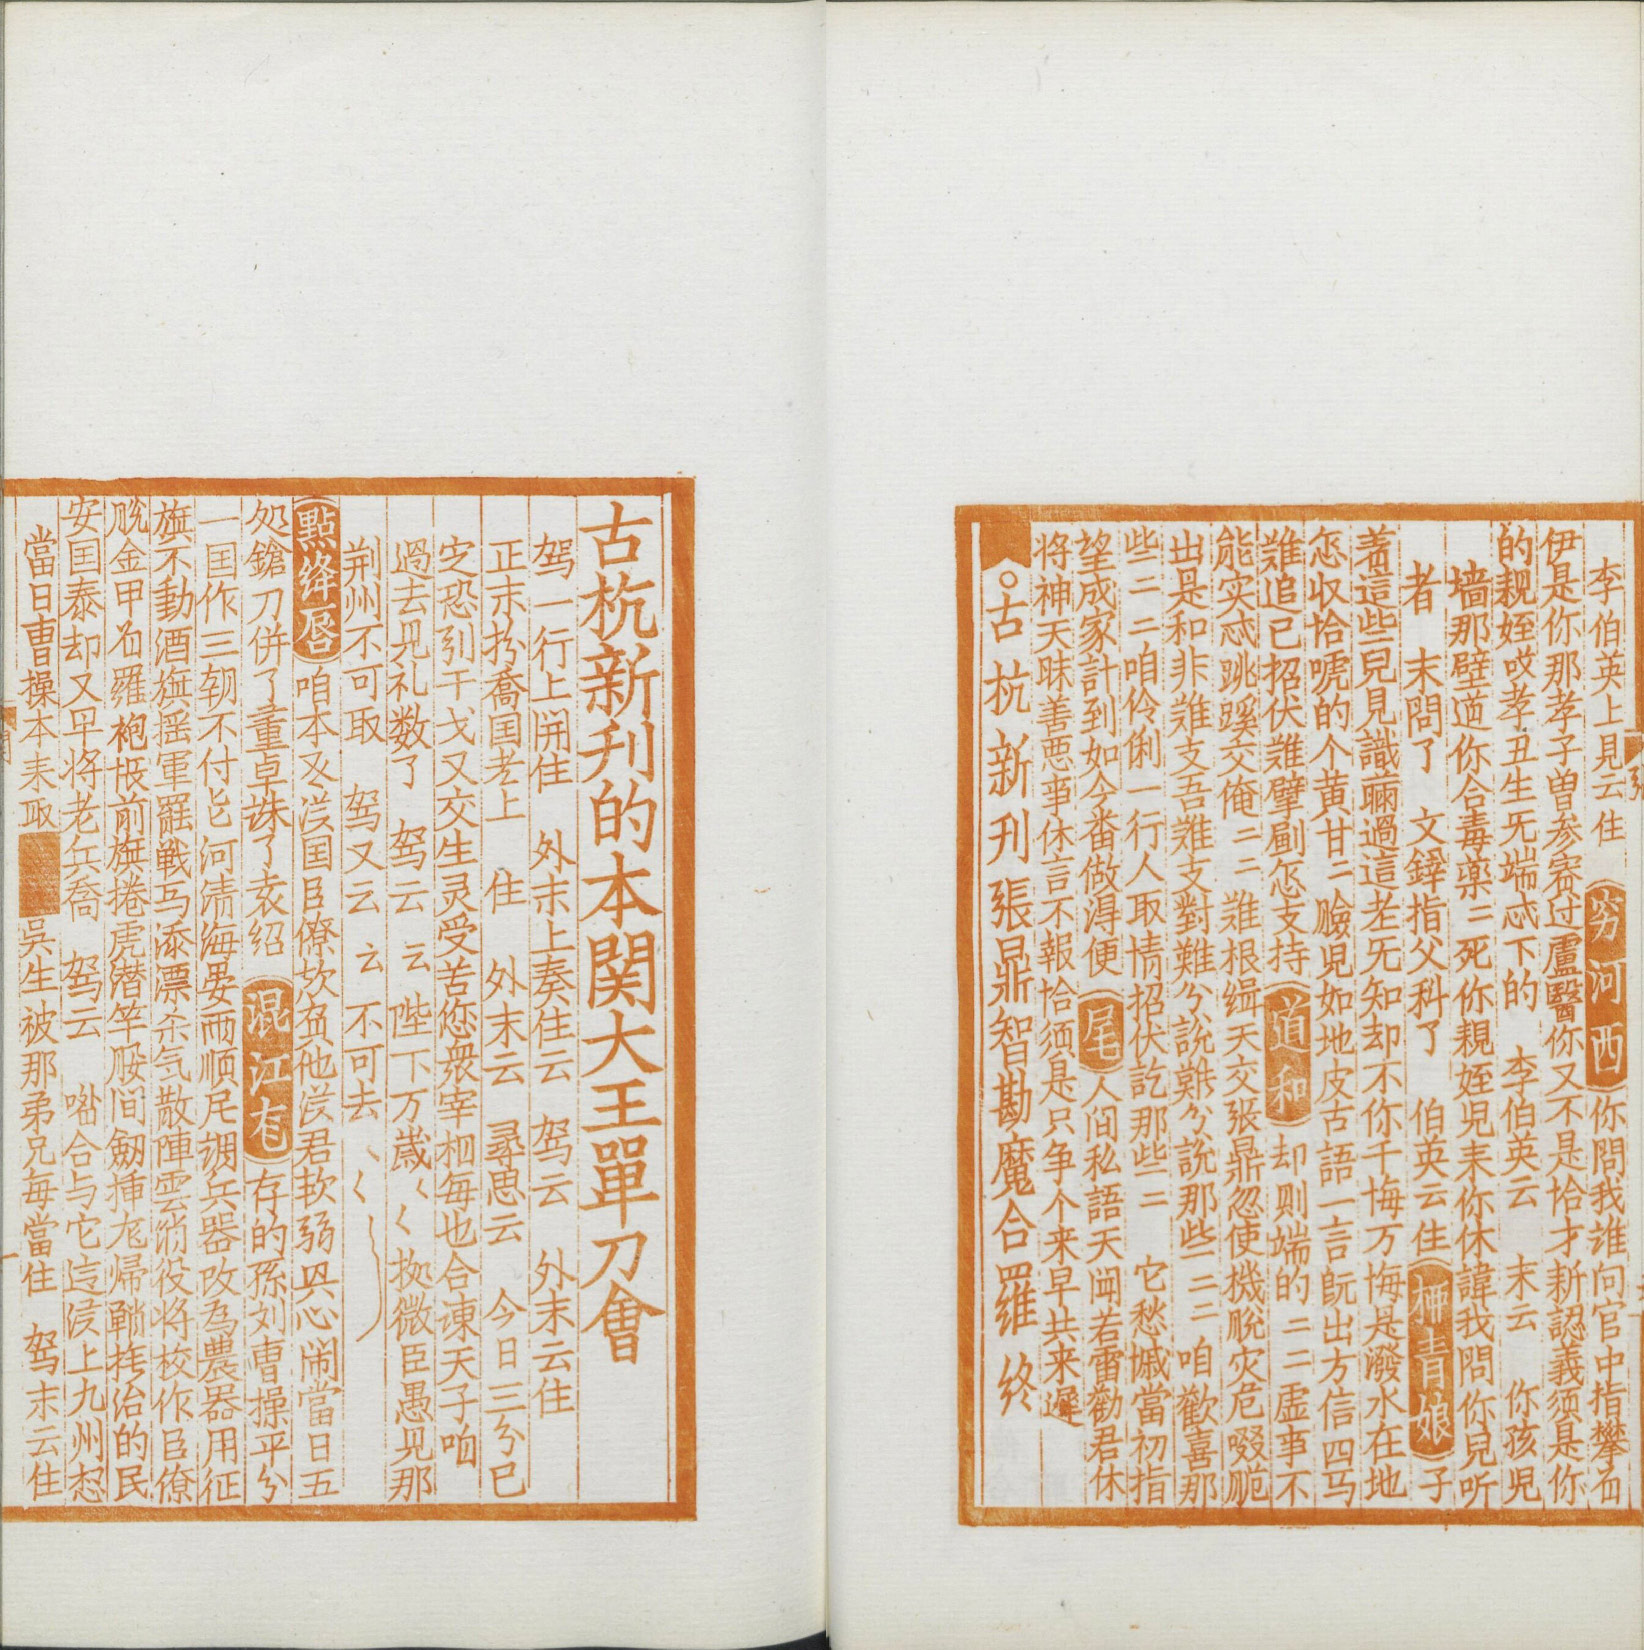 李伯英上見云住 窮河西 你問我誰向官中指攀着
伊是你那孝子曾参賽过盧醫你又不是恰才新認義須是你
的親姪哎孝丑生旡端忒下的 李伯英云 末云 你孩兒
墙那壁道你合毒藥二死你親姪兒来你休諱我問你兒听
者 末問了 文鐸指父科了 伯英云住 柳青娘 子
着這些兒見識𥈞過這老旡知却不你千悔万悔是潑水在地
怎收恰唬的个黄甘二臉児如地皮古語一言既出方信四马
難追已招伏難擘劃怎支持 道和 却则端的二二虚事不
能实忒跳蹊交俺二二難根缉天交張鼎忽使機脱灾危啜脆
出是和非難支吾難支對難分説難分説那些二二咱歡喜那
些二二咱伶俐一行人取情招伏訖那些二 它愁慽當初指
望成家計到如今番做淂便 尾 人间私語天闻若雷勸君休
将神天昧善恶事休言不報恰须是只争个来早共来遲
古杭新刋張鼎智勘魔合羅 终
古杭新刋的本関大王單刀會
驾一行上開住 外末上奏住云 驾云 外末云住
正末扮喬国老上 住 外末云 尋思云 今日三分已
定恐引干戈又交生灵受苦您衆宰相每也合諫天子咱
過去見礼数了 驾云 云 陛下万歲くく拠微臣愚見那
荆州不可取 驾又云 云 不可去くく
點絳唇 咱本又漢国臣僚欺負他漢君軟弱兴心闹當日五
処鎗刀併了董卓誅了袁绍 混江龙 存的孫刘曹操平分
一国作三朝不付能河清海晏雨順風调兵器改为農器用征
旗不動酒旗摇軍罷戦马添漂杀气散陣雲消役将校作臣僚
脱金甲着羅袍帐前旗捲虎潜竿腰间劔揷龙歸鞘撫治的民
安国泰却又早将老兵喬 驾云 㗳合与它這漢上九州想
當日曹操本来取 吳生被那弟兄每當住 驾末云住